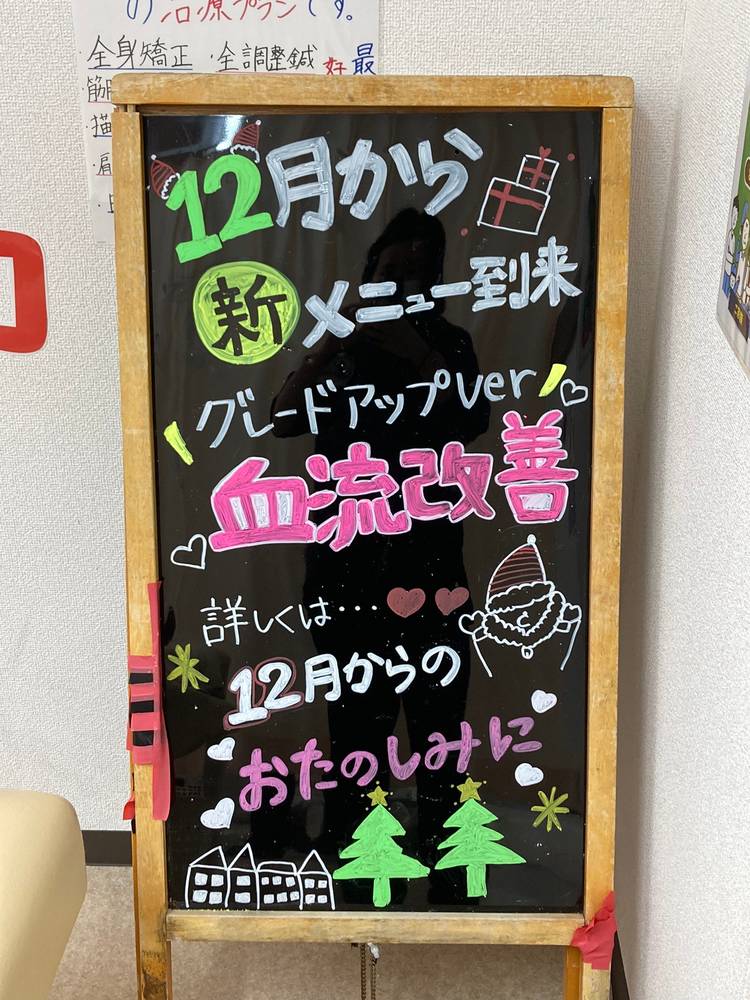 の治療プランです。
・全身矯正 ・全調整鍼
好
最
12月から
新メニュー到来
グレードアップver
血流改善
詳しくは…
12月からの
おたのしみに